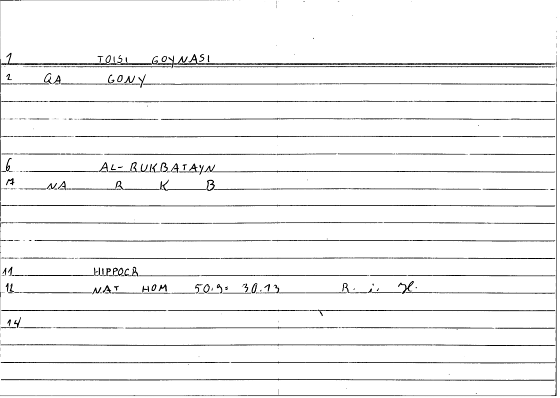 1 TOISI GOYNASI
2 GA GONY
6 AL-RUKBATAYN
7 NA R K B
11 HIPPOCR
12 NAT HOM 50.9= 30.13 R. i. H.
14